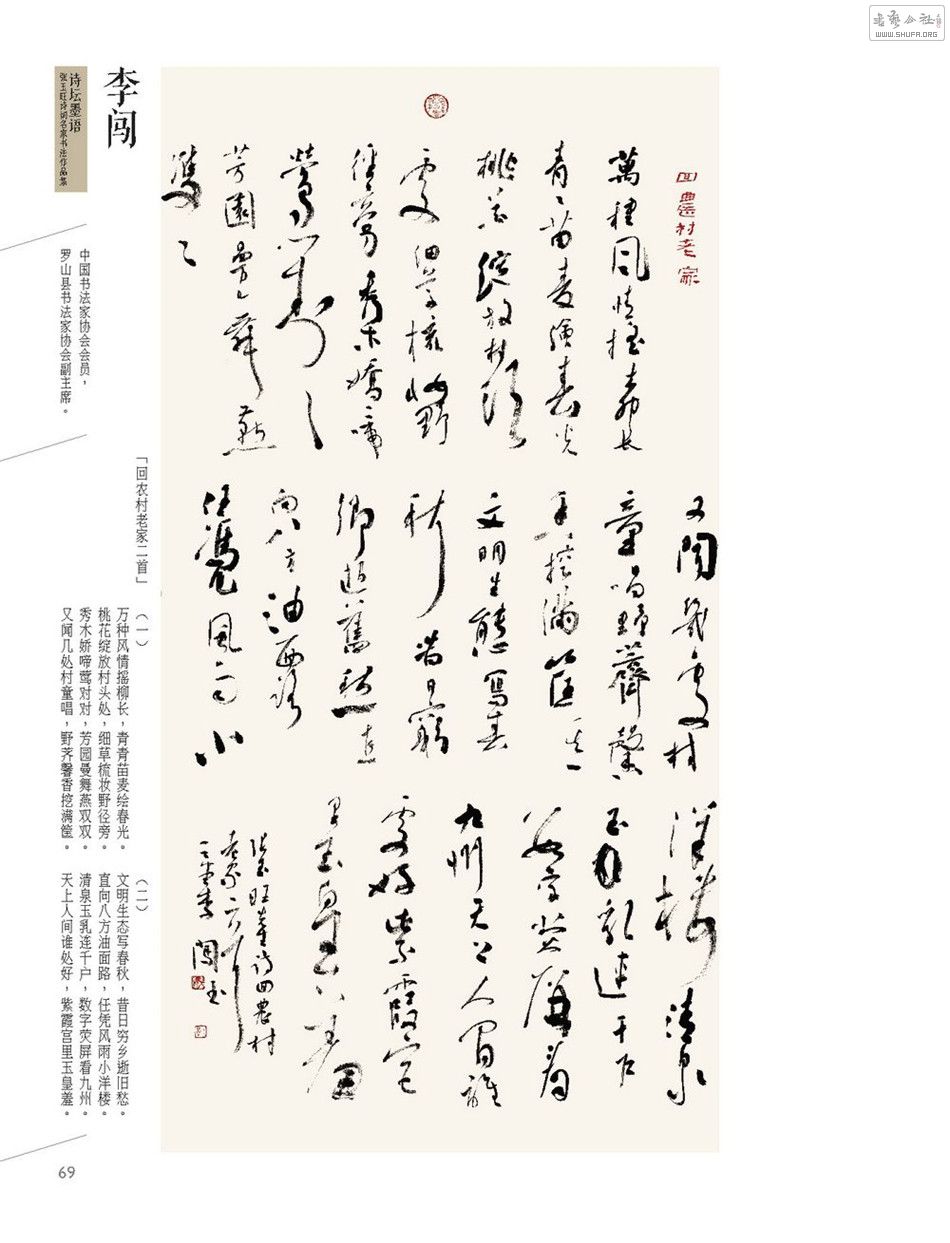 書藝公社
WWW.SHUFA.ORG
李闯
诗坛墨语
张玉旺诗词名家书法作品集
中国书法家协会会员，
罗山县书法家协会副主席。
「回农村老家二首」
（一）
万种风情摇柳长，青青苗麦绘春光。
桃花绽放村头处，细草梳妆野径旁。
秀木娇啼莺对对，芳园曼舞燕双双。
又闻几处村童唱，野荠馨香挖满筐。
（二）
文明生态写春秋，昔日穷乡逝旧愁。
直向八方油面路，任凭风雨小洋楼。
清泉玉乳连千户，数字荧屏看九州。
天上人间谁处好，紫霞宫里玉皇羞。
回農村老家
萬種風情搖柳長
青青苗麦繪春光
桃花綻放村頭
處細草梳妝野
徑旁秀木嬌啼
鶯對對
芳園曼舞燕
雙雙
又聞幾處村
童唱野薺馨
香挖滿筐其二
文明生態寫春
秋昔日窮
鄉逝舊愁直
向八方油面路
任憑風雨小
洋樓清泉
玉乳連千户
数字荧屏看
九州天上人間誰
處好紫霞宫
里玉皇羞
張玉旺詩回農村
老家二首
李闖書
69